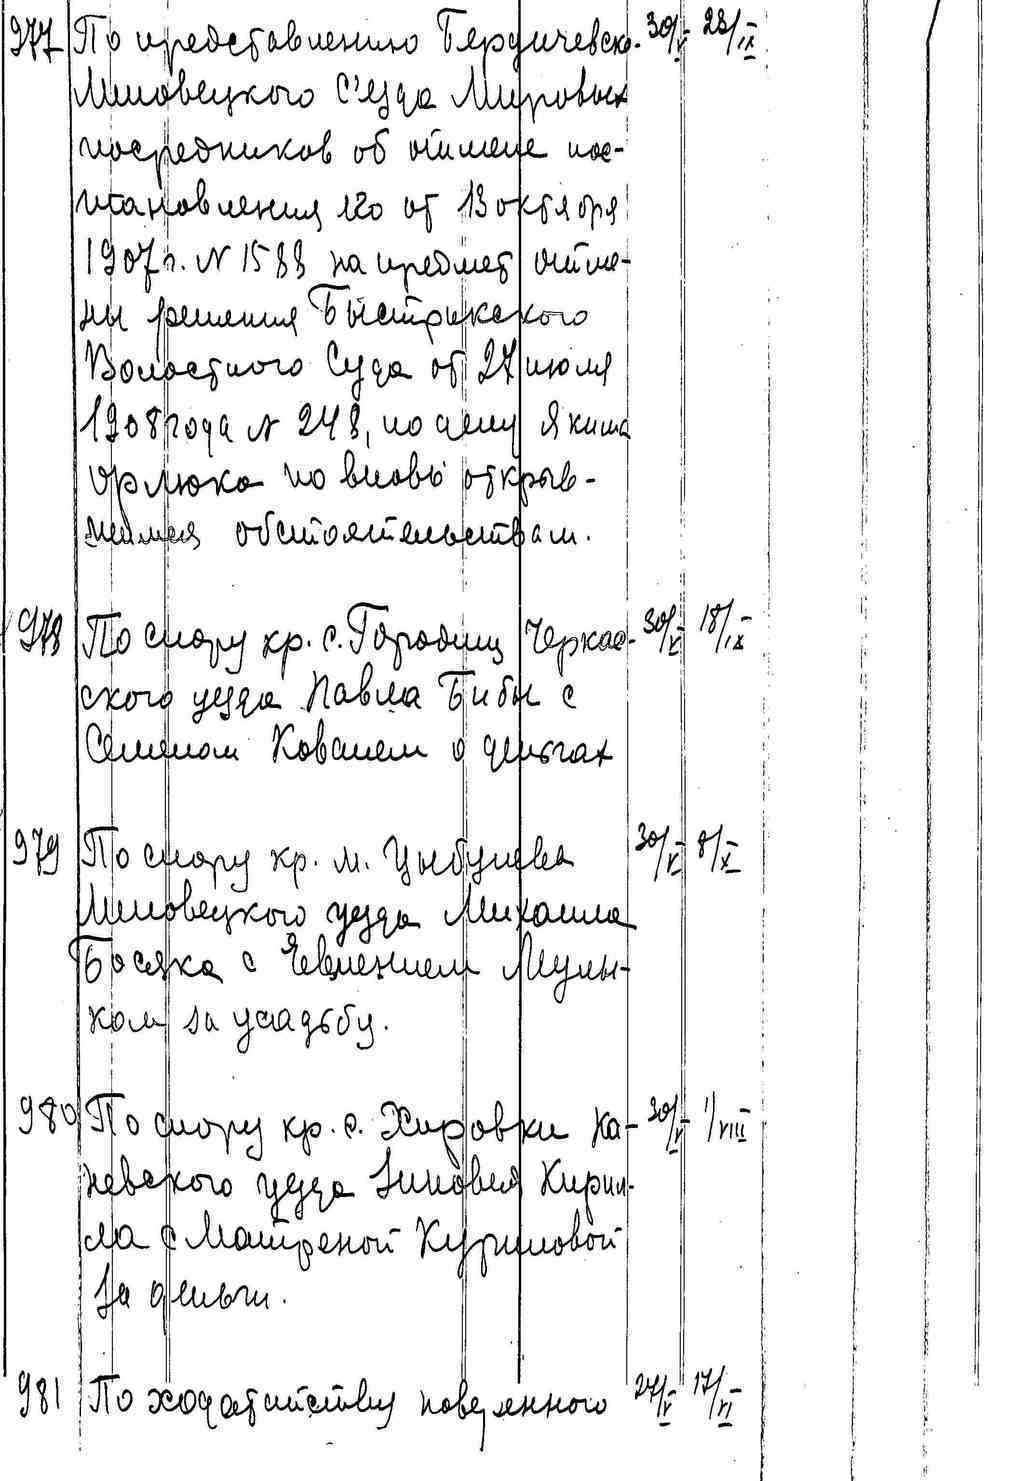 977 По представлению Бердичевско- 30/V 23/IX
Липовецкого С'езда Мировых
посредников об отмене пос-
тановления его от 13 октября
1907 г. N 1588 на предмет отме-
ны решения Быстрикского
Волостного Суда от 27 июля
1908 года N 248, по делу Якима
Орлюка по вновь открыв-
шимся обстоятельствам.
978 По спору кр. с. Городищ Черкас- 30/V 18/IX
ского уезда Павла Бибы с
Семеном Ковалем о деньгах
979 По спору кр. м. Цыбулева 30/V 8/X
Липовецкого уезда Михаила
Босяка с Евмением Мулы-
ком за усадьбу.
980 По спору кр. с. Хировки Ка- 30/V 1/VIII
невского уезда Зиновея Кирил-
ла с Матреной Куриловой
за деньги.
981 По ходатайству поверенного 27/V 17/VI